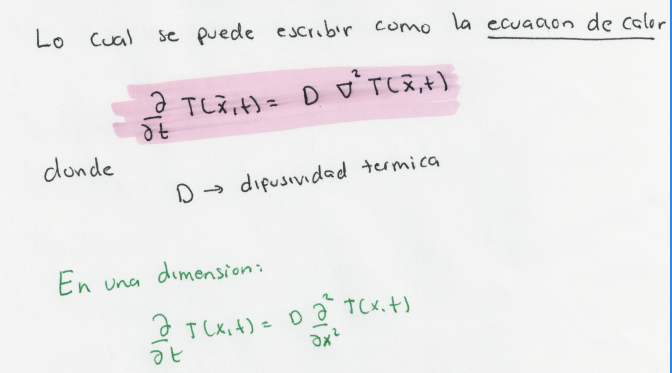 Lo cual se puede escribir como la ecuacion de calor
∂/∂t T(x̄,t) = D ∇² T(x̄,t)
donde
D → difusividad termica
En una dimension:
∂/∂t T(x,t) = D ∂²/∂x² T(x,t)